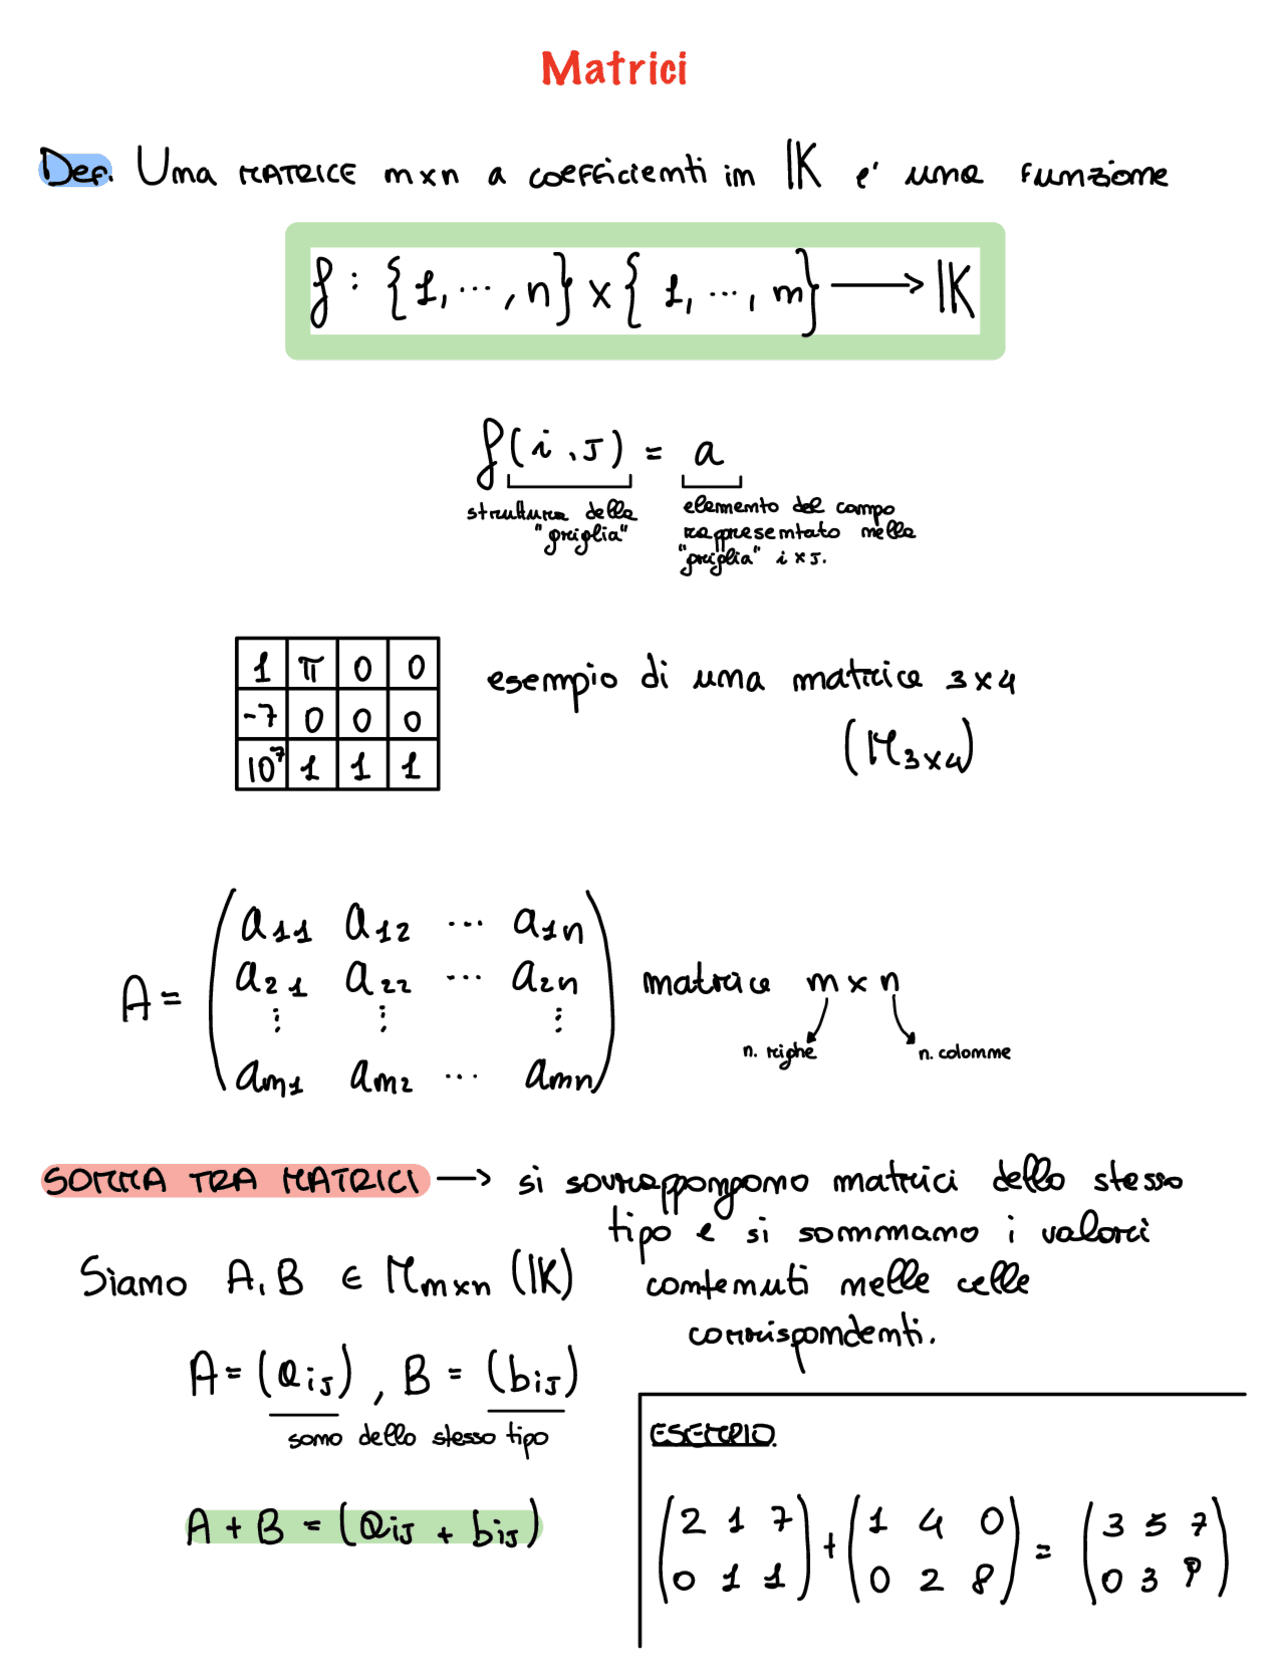 Matrici
Def. Una MATRICE m×n a coefficienti in 𝕂 e' una funzione
f : {1, ..., n} × { 1, ..., m} → 𝕂
f(i,J) = a
struttura della "griglia"
elemento del campo
rappresentato nella
"griglia" i × J.
1 π 0 0
-7 0 0 0
10⁷ 1 1 1
esempio di una matrice 3×4
(M₃ₓ₄)
A = ( a₁₁ a₁₂ ... a₁ₙ
a₂₁ a₂₂ ... a₂ₙ
⋮ ⋮ ⋮
aₘ₁ aₘ₂ ... aₘₙ )
matrice m × n
n. righe n. colonne
SOMMA TRA MATRICI → si sovrappongono matrici dello stesso
tipo e si sommano i valori
contenuti nelle celle
corrispondenti.
Siano A, B ∈ Mₘₓₙ (𝕂)
A = (aᵢJ) , B = (bᵢJ)
sono dello stesso tipo
A + B = (aᵢJ + bᵢJ)
ESEMPIO
(2 1 7) + (1 4 0) = (3 5 7)
(0 1 1) (0 2 8) (0 3 9)